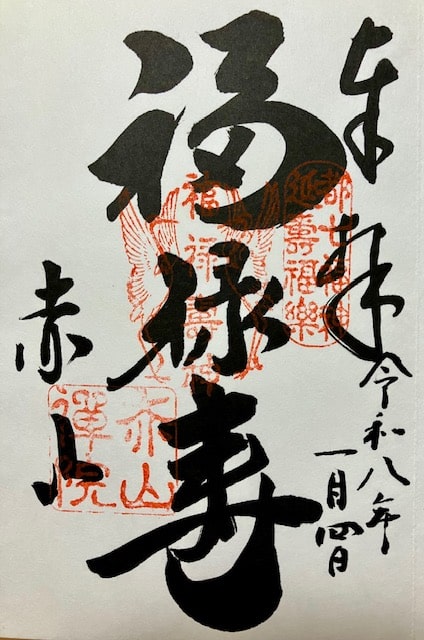 奉拝
令和八年
一月四日
都七福神
延寿福楽
福禄寿
福禄寿神
赤山
赤山
禅院